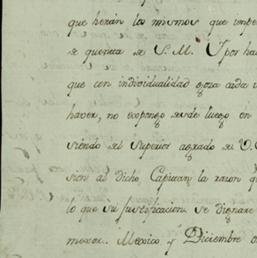 que herán los mismos que impen
se quenta de S. M. Y por ha
que con individualidad goza cada u
haver, no expongo desde luego en
siendo del Superior agrado de V. E
sion al dicho Capitan la razon q
lo que su justificacion se dignare
mexor. Mexico y Diciembre